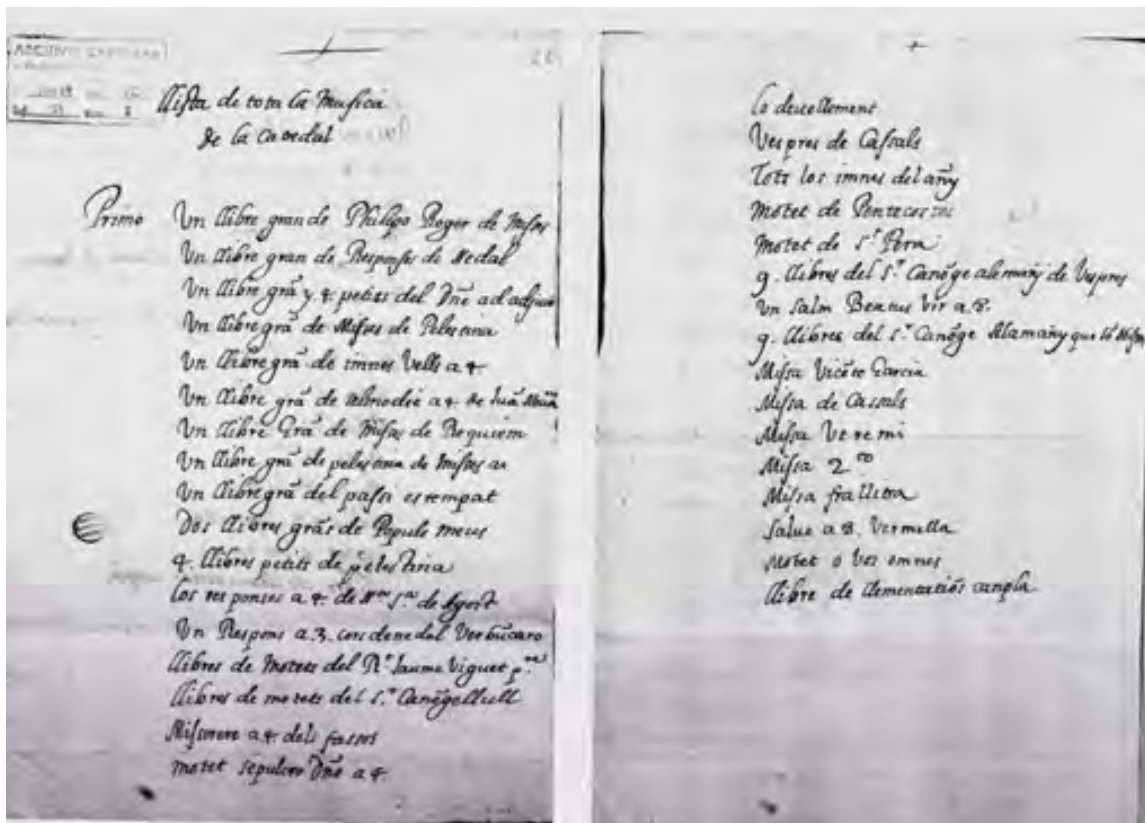 ARCHIVO
Llista de tota la Musica
de la Catedal
Primo Un llibre gran de Philipo Roger de Misses
Un llibre gran de Responses de Nedal
Un llibre grã y 4. petits del Dñe ad adju
Un llibre grã de Misses de Pelestrina
Un llibre grã de imnes Vells a 4
Un llibre grã de a 4. de
Un llibre Grã de Misas de Requiem
Un llibre grã de pelestrina de Misses a
Un llibre grã del passi estempat
Dos llibres grãs de Popule meus
4. llibres petits de pelestrina
Los responses a 4. de Nra Sra de Agost
Un Respons a 3. cors de nedal Verbũ caro
llibres de Motets del Rt Jaume Viguet
llibres de motets del Sr Canõge llull
Miserere a 4. dels fassos
motet sepulcro Dño a 4.
lo devellement
Vespres de Cassals
Tots los imnes del añy
Motet de Pentecostes
Motet de St Pera
9. llibres del Sr Canõge alemañy de Vespres
Un salm Beatus Vir a 8.
9. llibres del Sr Canõge Alamañy que
Missa Vicẽto Garcia
Missa de Cassals
Missa Ut re mi
Missa 2
Missa
Salve a 8. Vermella
Motet o Vos omnes
llibre de llementatiõs